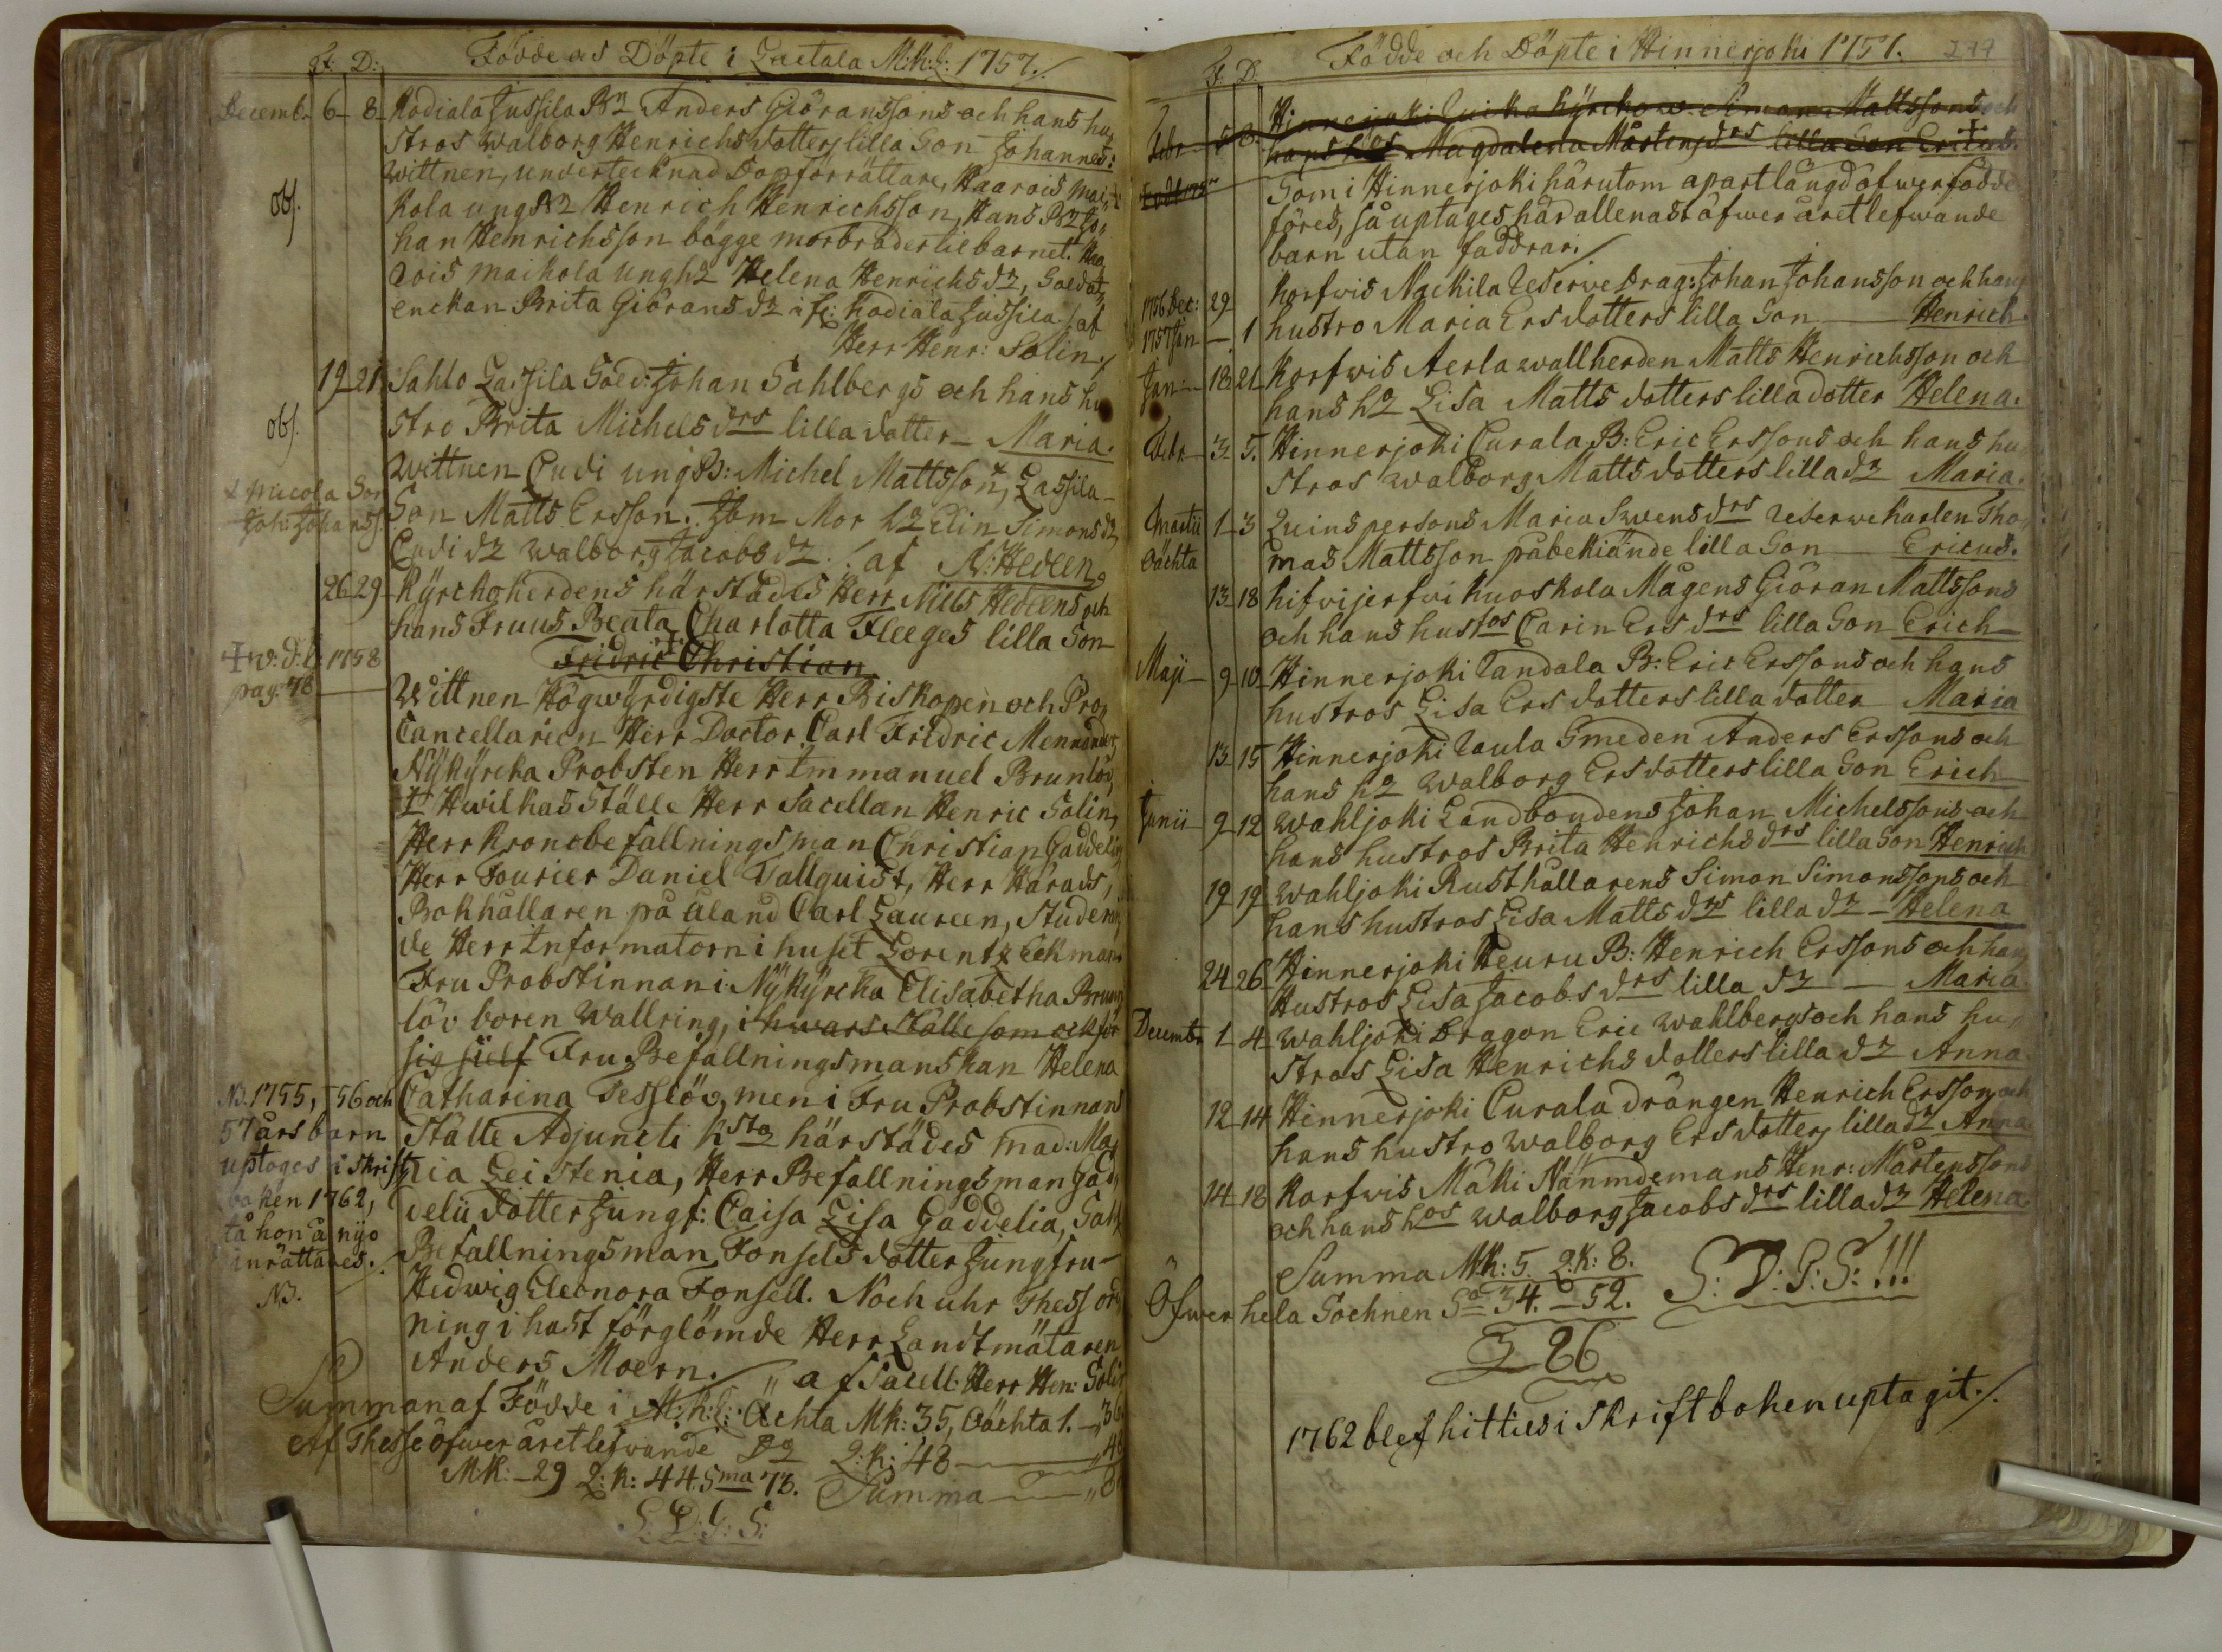 F. D: Födde och Döpte i Laitala M:K:L: 1757./
Decemb. 6 8 Kodiala Jussila B:r Anders Giöranssons och hans hu,
stros Walborg Henrichsdotters lilla Son Johannes:
Wittnen, undertecknad Dopförrättare, Haarois Mai,
obs. kola ung B:r Henrich Henrichsson, Hans B:r Jo,
han Henrichsson bägge morbröder til barnet. Haa
rois Maikola ungh:r Helena Henrichs dr, Soldat,
enckan Brita Giörans dr ifr: Kodiala Jussila /: af
Herr Henr: Solin./
19 21 Sahlo Lassila Sold: Johan Sahlbergs och hans hu
obs. stro Brita Michels drs lilla dotter – Maria.
Wittnen Cudi ung B: Michel Mattsson, Lassila
+ Micola Son
Joh: Johanss
Son Matts Ersson. Item Mor hr Elin Simons dr
Cudi dr Walborg Jacobs dr ./ af N: Hedeen
26 29 Kyrckoherdens härstädes Herr Nils Hedeens och
hans Fruus Beata Charlotta Fleeges lilla Son
+ w: d: b: 1758
pag: 78
Fridric Christian
Wittnen Högwyrdigste Herr Biskopen och Pro,
Cancellarien Herr Doctor Carl Fridric Mennander,
Nykyrcka Probsten Herr Immanuel Brunlöv,
I Hwilkas ställe Herr Sacellan Henric Solin,
Herr Kronobefallningsman Christian Gaddelin,
Herr Fourier Daniel Tallquist, Herr Härads,
Bokhållaren på Åland Carl Laureen, Studeran,
de Herr Informatorn i huset Lorentz Eckman
Fru Probstinnan i Nykyrcka Elisabetha Brun,
löv boren Wallring, i hwars ställe som ock för
sig sielf Fru Befallningsmanskan Helena
NB. 1755, 56 och
57 års barn
uptoges i skrift
boken 1762,
tå hon å nyo
inrättades.
NB.
Catharina Tesslöv, men i Fru Probstinnans
ställe Adjuncti hsto härstädes Mad: Ma,
ria Leistenia, Herr Befallningsman Gad,
delii dotter Jungf: Caisa Lisa Gaddelia, Sal:
Befallningsman Fonsels dotter Jungfru
Hedwig Eleonora Fonsell. Noch uhr Thess ord,
ning i hast förglömde Herr Landtmätaren
Anders Moern./ „ af Sacell: Herr Hen: Solin
Summan af Födde i M:K:L: Ächta Mk: 35, Oächta 1. – 36
Af Thesse öfwer året lefwande Q:K: 48 – 48
M:K: – 29 Q:K: 44. Sma 73. Summa
S: D: G: S:
F. D. Födde och Döpte i Hinnerjoki 1757. 277
Hinnerjoki Kyrckow. Simon Mattssons och
Febr. 5 8. hans hos Magdalena Mårtens drs lilla Son Ericus.
Som i Hinnerjoki härutom apart längd öfwer födde
föres, så uptages här allenast öfwer året lefwande
barn utan faddrar./
1756 Dec: 29 Korfwis Nackila Reserve Drag: Johan Johansson och hans
1757 Jan – 1 hustro Maria Ersdotters lilla Son – Henrich
Jan – 18 21 Korfwis Aerla wallherden Matts Henrichsson och
hans hr Lisa Mattsdotters lilla dotter Helena.
Febr. 3 5. Hinnerjoki Curala B: Eric Erssons och hans hu,
stros Walborg Mattsdotters lilla dr Maria.
Martii 1 3 Quinspersons Maria Svens drs Reserwekarlen Tho,
Oächta mas Mattsson påbekiände lilla Son – Ericus.
13 18 Hifwijerfwi Kuoskola Mågens Giöran Mattssons
och hans hustos Carin Ers drs lilla Son Erich
Maji – 9 10 Hinnerjoki Tandala B: Eric Erssons och hans
hustros Lisa Ersdotters lilla dotter Maria
13 15 Hinnerjoki Taula Smeden Anders Erssons och
hans hr Walborg Ersdotters lilla Son Erich
Junii – 9 12 Wahljoki Landbondens Johan Michelssons och
hans hustros Brita Henrichs drs lilla Son Henrich
19 19 Wahljoki Rusthållarens Simon Simonssons och
hans hustros Lisa Matts drs lilla dr – Helena
24 26 Hinnerjoki Heuru B: Henrich Erssons och hans
Hustros Lisa Jacobs drs lilla dr – Maria
Decembr. 1 4 Wahljoki Dragon Eric Wahlbergs och hans hu,
stros Lisa Henrichsdotters lilla dr Anna
12 14 Hinnerjoki Curala drängen Henrich Ersson och
hans hustro Walborg Ersdotters lilla dr Anna.
14 18 Korfwis Mäki Nämndemans Henr: Mårtenssons
och hans hos Walborg Jacobs drs lilla dr Helena
Summa Mk: 5. Q:K: 8. S: D: G: S: !!!
Öfwer hela Sochnen Sa 34. – 52.
86
1762 blef hittils i skriftboken uptagit./.